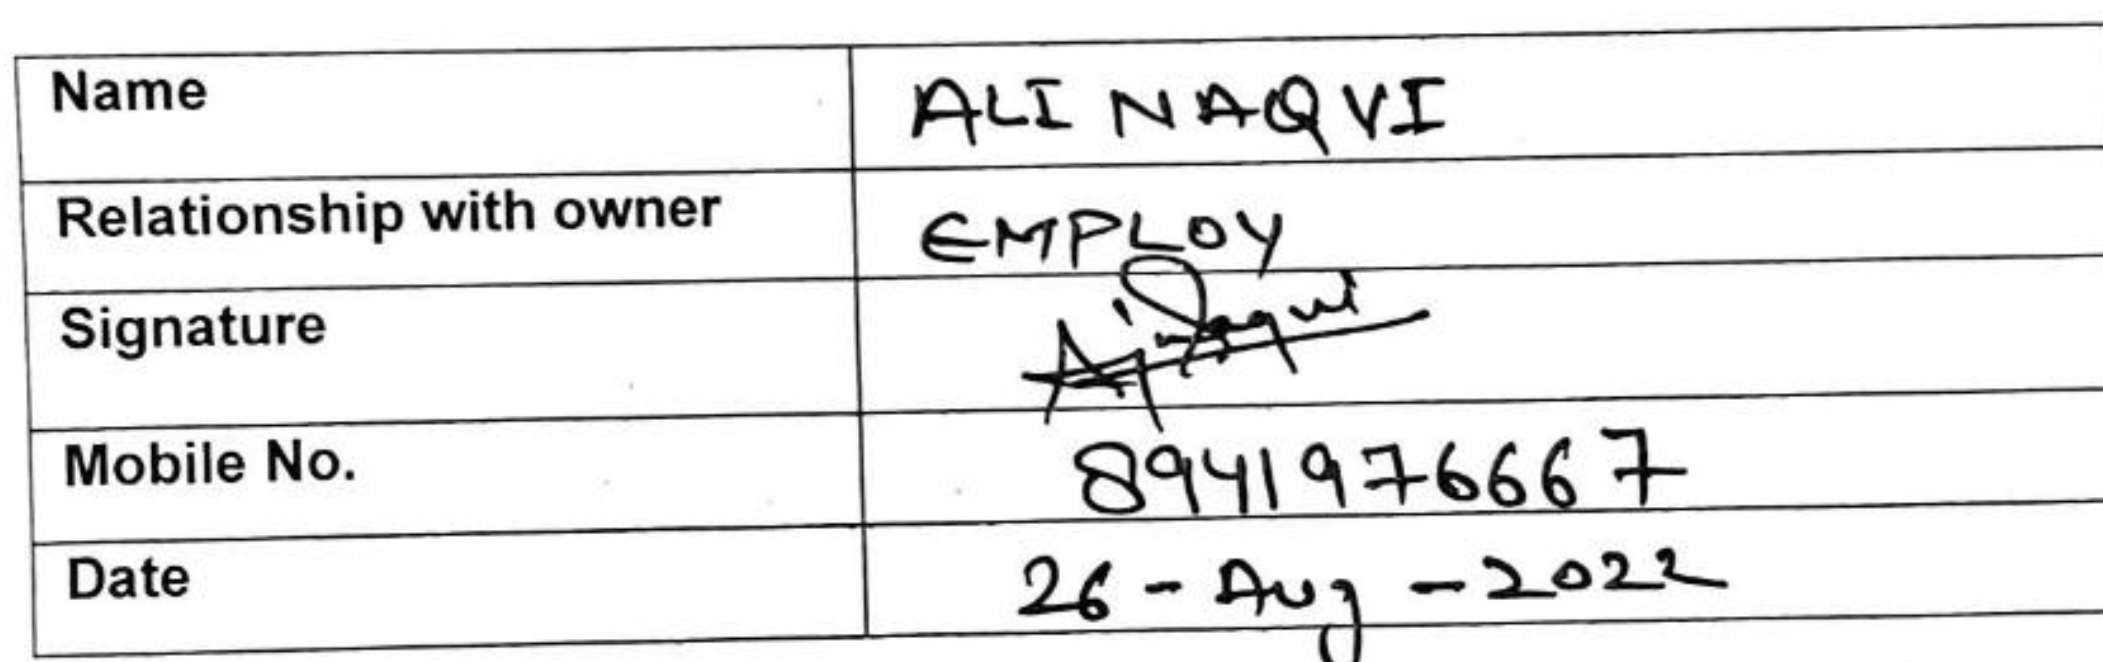 Name ALI NAQVI
Relationship with owner EMPLOY
Signature
Mobile No. 8941976667
Date 26-Aug-2022